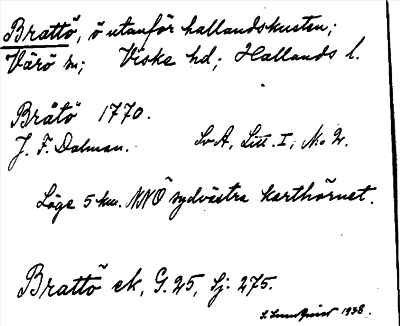 Brattö, ö utanför hallandskusten;
Värö sn; Viske hd; Hallands l.
Bråtö 1770.
J. F. Dalman. SvA, Litt. I; No 2.
Läge 5 km. NNÖ sydvästra karthörnet.
Brattö ek, G. 25, Sj. 275.
S. Lundqvist 1938.